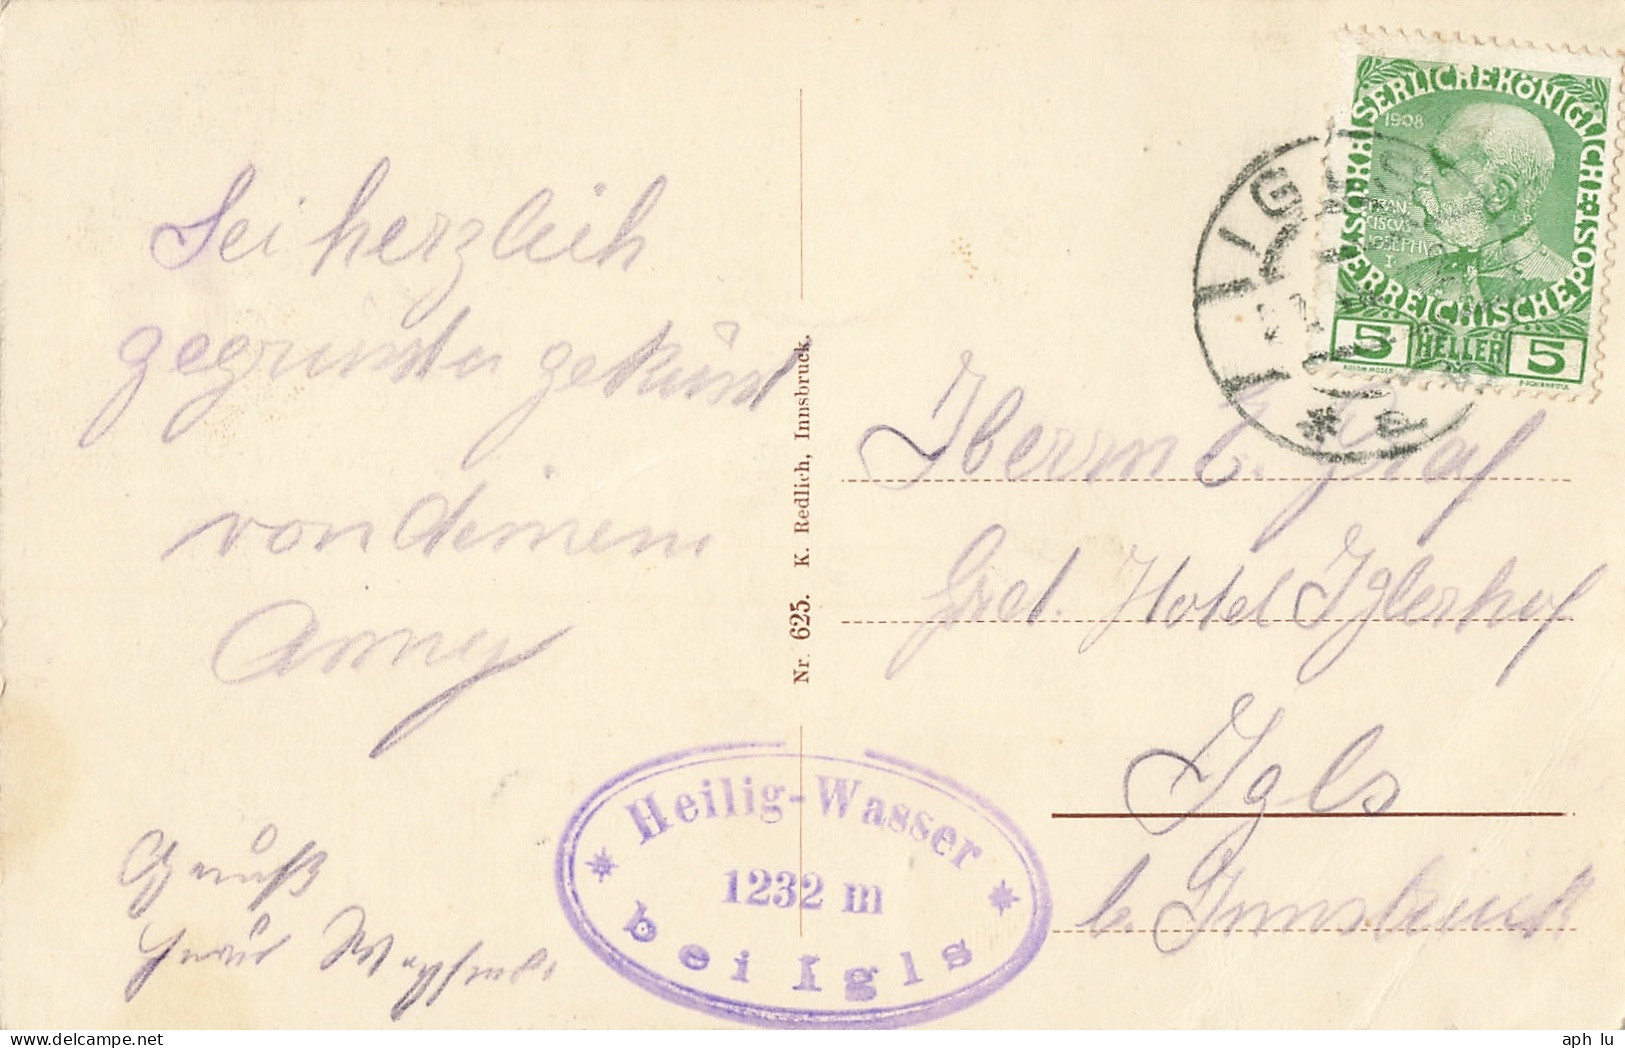 Sei herzlich
gegrüsst u geküsst
von deinem
Anny
Gruß
Nr. 625. K. Redlich, Innsbruck.
KAISERLICHE KÖNIGLICHE ÖSTERREICHISCHE POST
1908
FRAN
CISCVS
IOSEPHVS
I
5 HELLER 5
IGLS
Heilig-Wasser
1232 m
bei Igls
Graf
Hotel Iglerhof
Igls
b. Innsbruck
aph lu